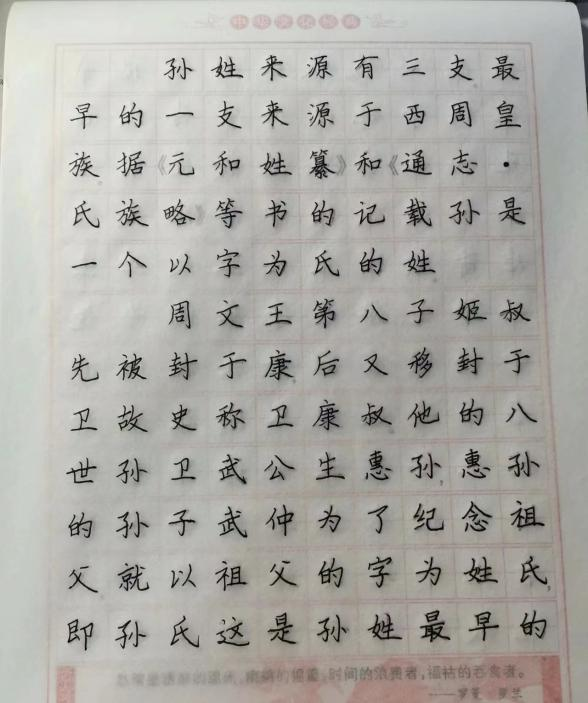 中华文化经典
孙姓来源有三支最
早的一支来源于西周皇
族据《元和姓纂》和《通志·
氏族略》等书的记载孙是
一个以字为氏的姓
周文王第八子姬叔
先被封于康后又移封于
卫故史称卫康叔他的八
世孙卫武公生惠孙,惠孙
的孙子武仲为了纪念祖
父就以祖父的字为姓氏,
即孙氏这是孙姓最早的
时间的浪费者,福祜的吞食者。